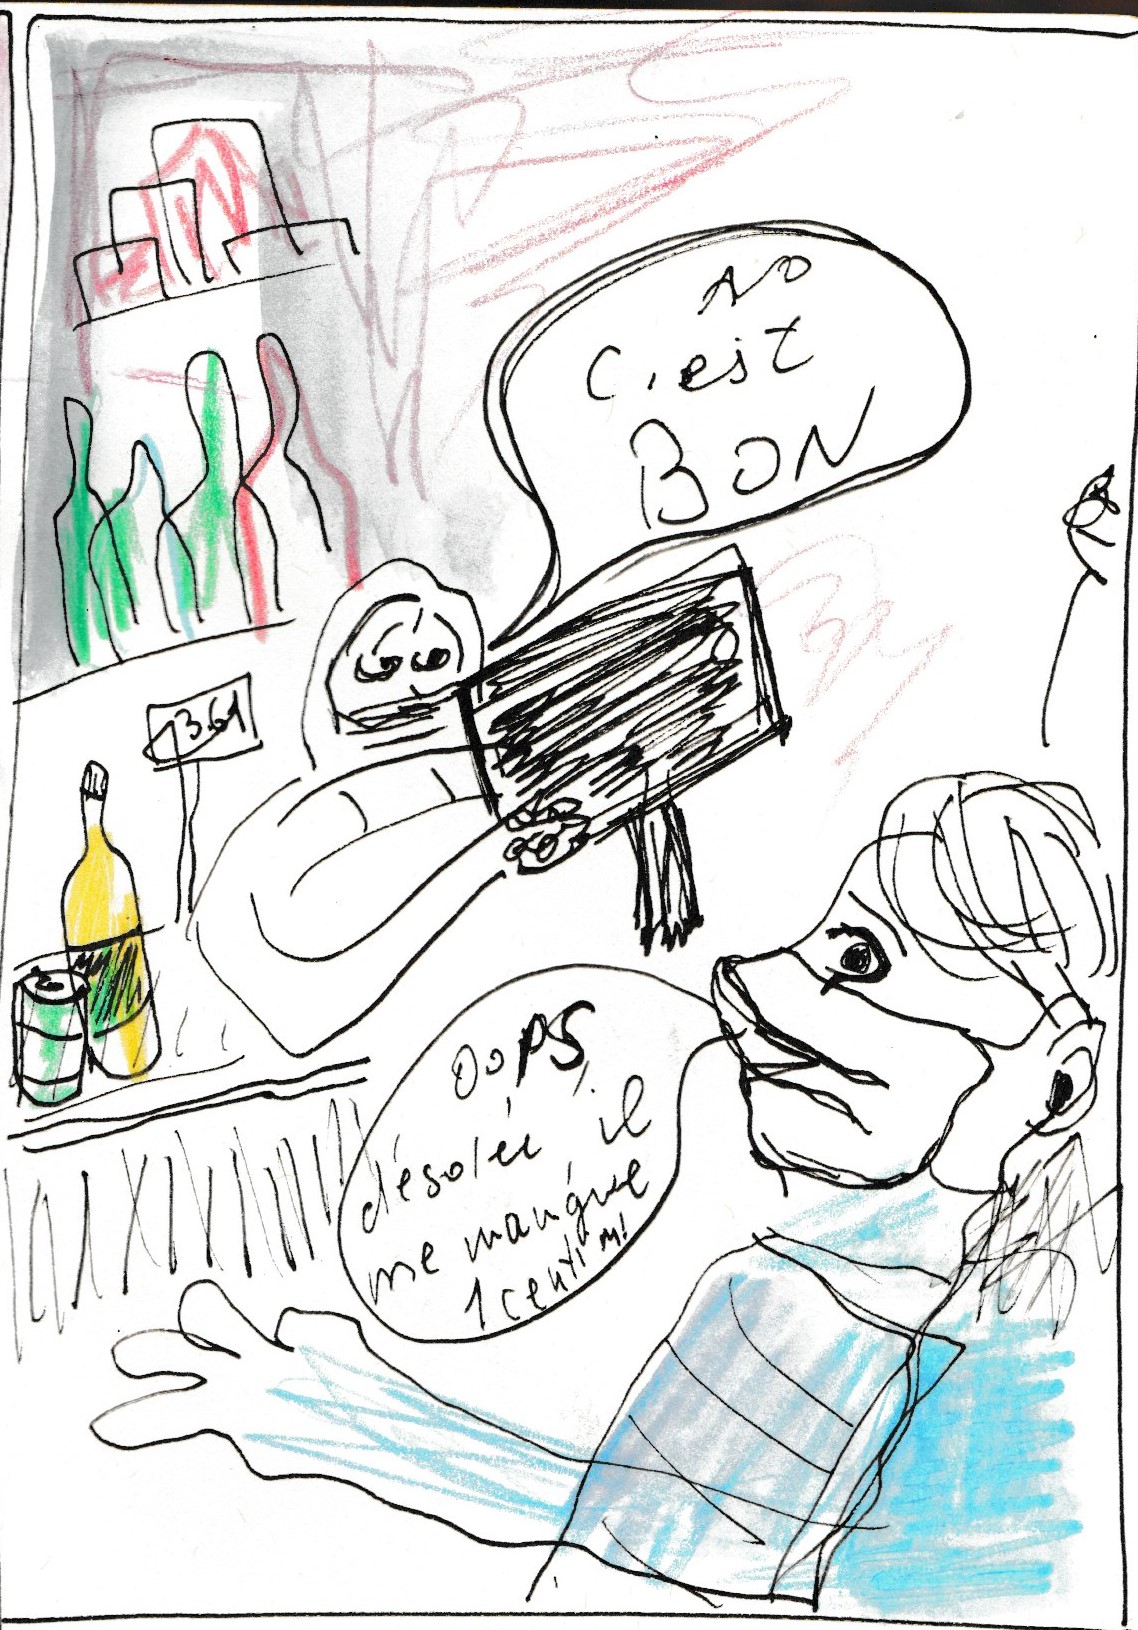 NO
C'est
BON
3.61
OOPS
désoleé il
me manque
1 centim!